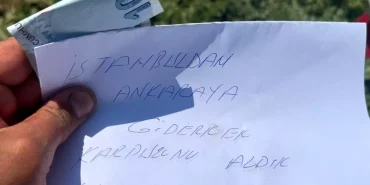 İSTANBULDAN
ANKARAYA
GİDERKEN
KARPUZUNU ALDIK